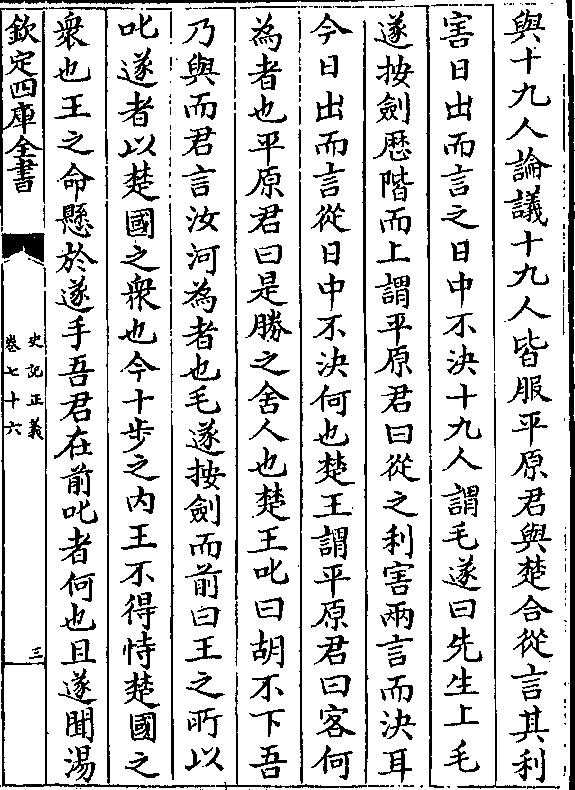 與十九人論議十九人皆服平原君與楚合從言其利
害日出而言之日中不決十九人謂毛遂曰先生上毛
遂按劍歷階而上謂平原君曰從之利害兩言而決耳
今日出而言從日中不決何也楚王謂平原君曰客何
為者也平原君曰是勝之舍人也楚王叱曰胡不下吾
乃與而君言汝何為者也毛遂按劍而前曰王之所以
叱遂者以楚國之衆也今十步之內王不得恃楚國之
衆也王之命懸於遂手吾君在前叱者何也且遂聞湯
欽定四庫全書
史記正義
卷七十六
三